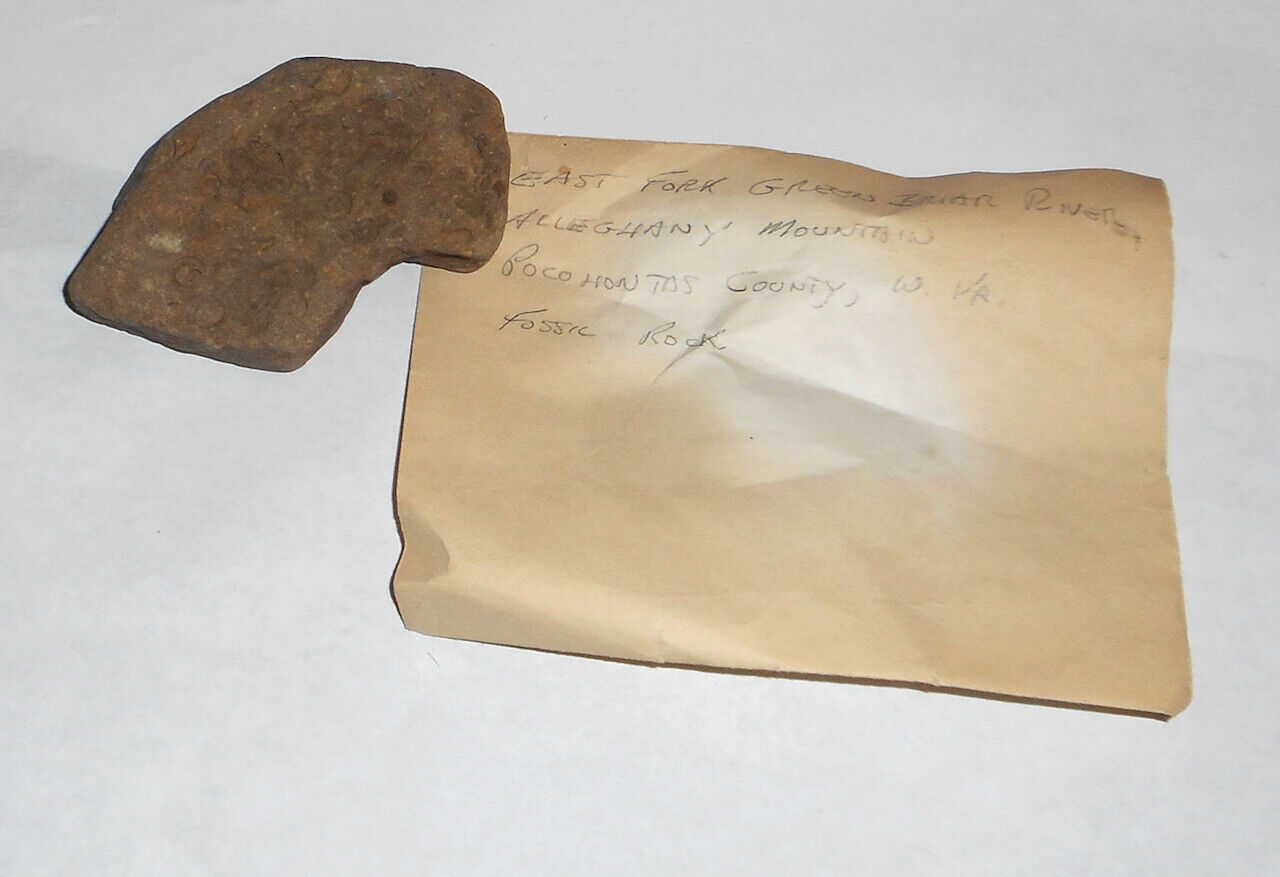 EAST FORK GREENBRIAR RIVER,
ALLEGHANY MOUNTAIN
POCOHONTAS COUNTY, W. VA.
FOSSIL ROCK